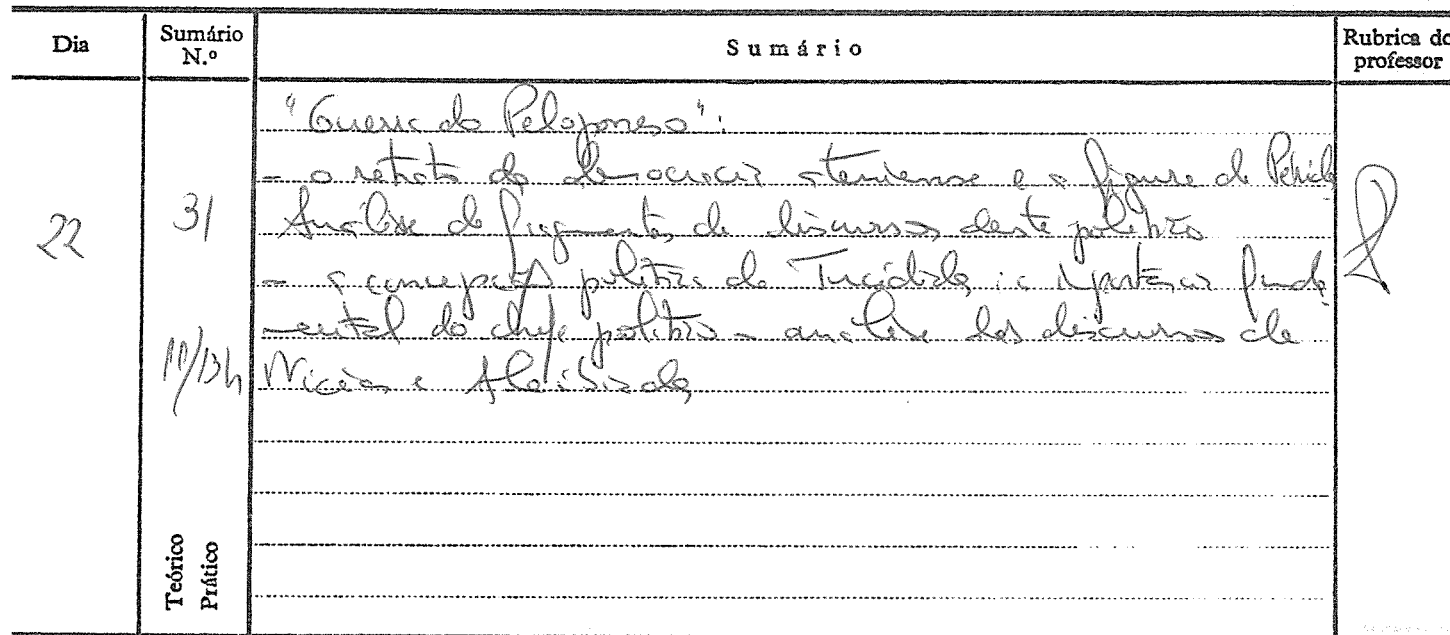 Dia
Sumário N.º
Sumário
Rubrica do professor
22
31
11/13h
Teórico
Prático
"Guerra do Peloponeso":
- o retrato da democracia ateniense e a figura de Péricles
Análise de fragmentos de discursos deste político
- a concepção política de Tucídides: a importância funda
mental do chefe político - análise dos discursos de
Nícias e Alcibíades